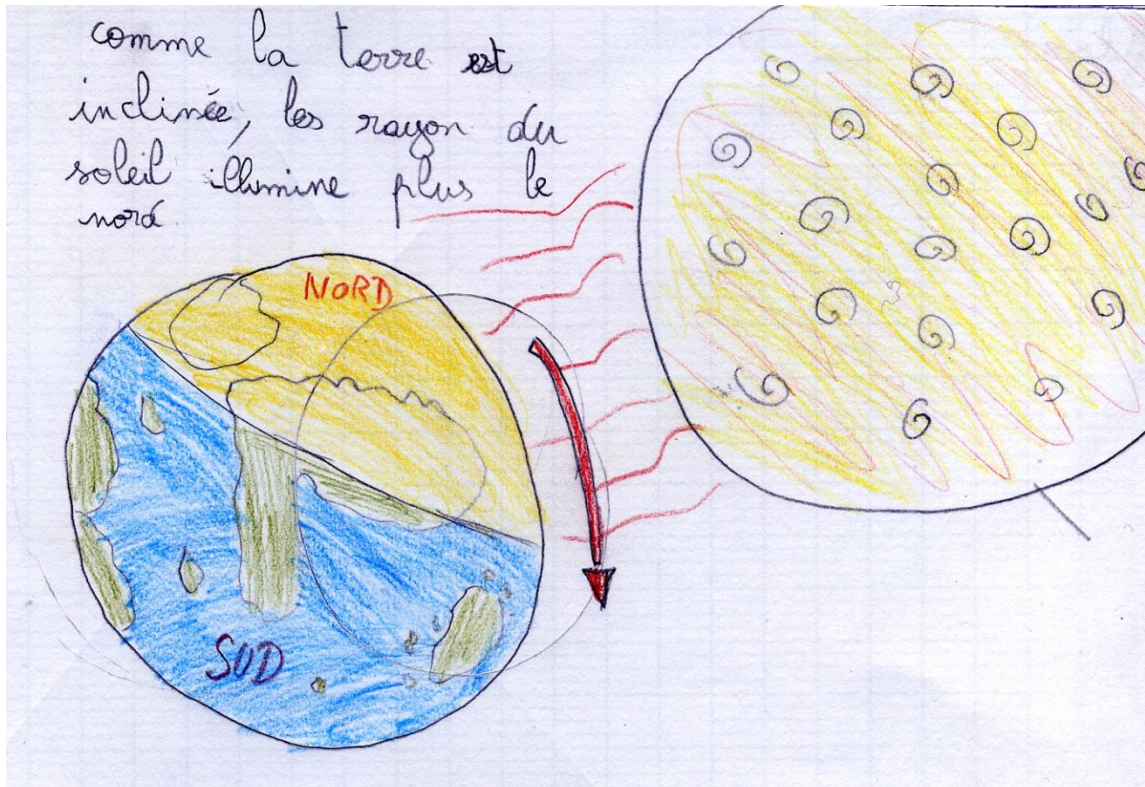 comme la terre est
inclinée, les rayon du
soleil illumine plus le
nord.
NORD
SUD